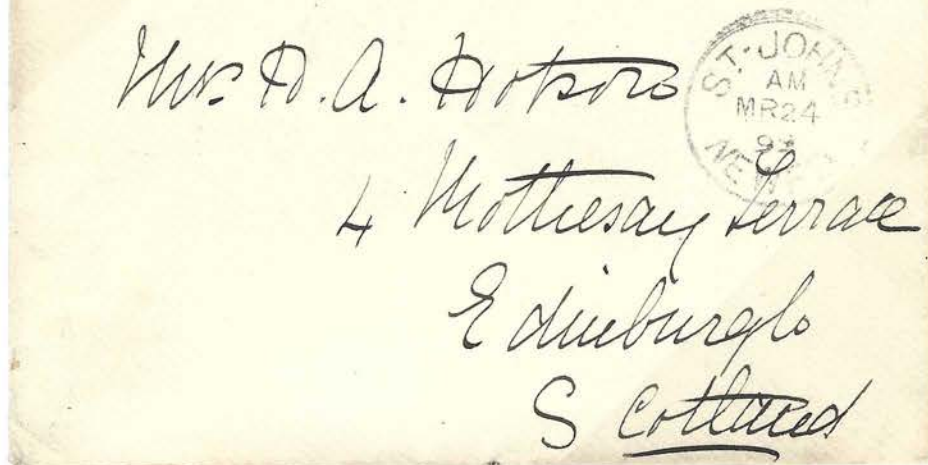 Mrs. D. A. Hobson
4 Rothesay Terrace
Edinburgh
Scotland
ST. JOHN'S
AM
MR 24
NEW